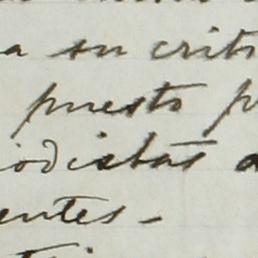 a su crite
puesto p
iodistas a
entes -